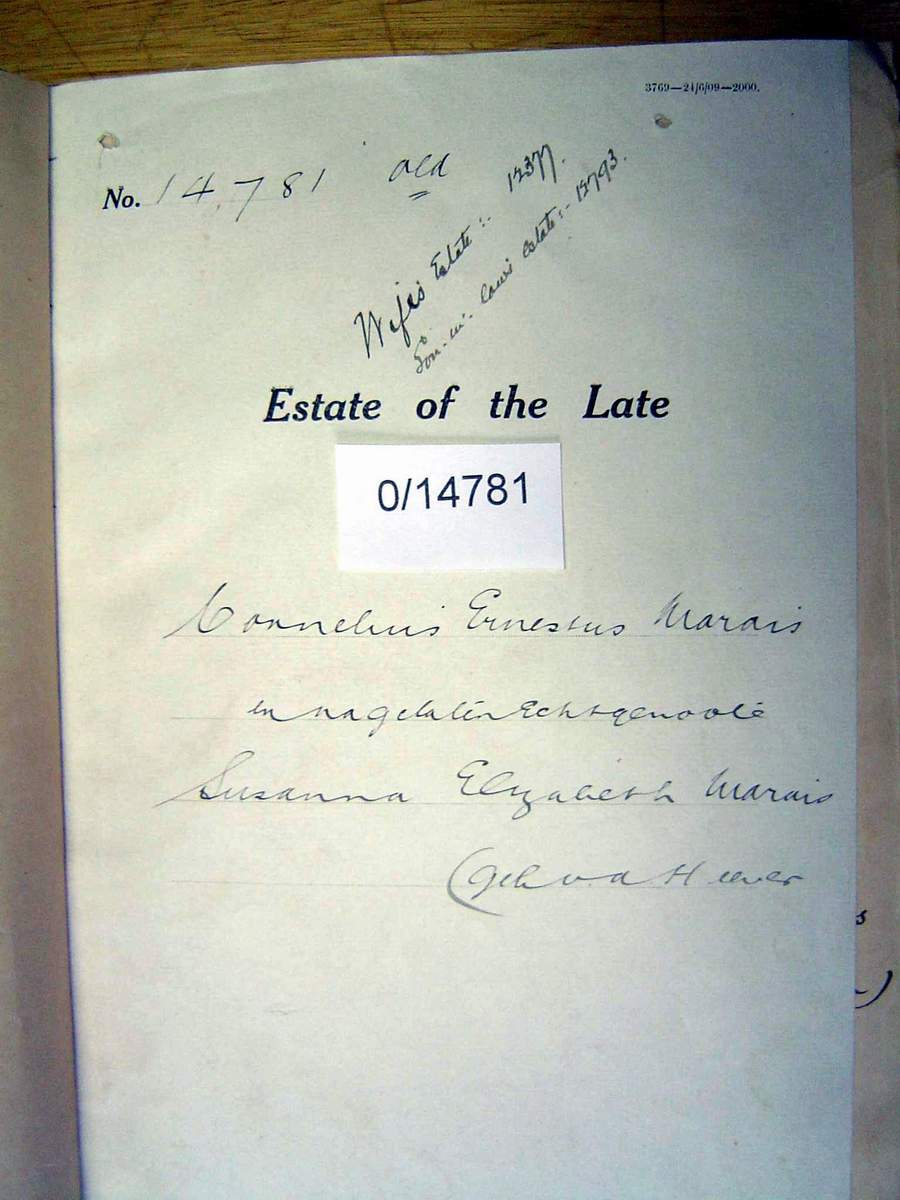 3769—24/6/09—2000.
No. 14,781 old
Wifes Estate :- 12377.
Son-in-laws Estate:- 12793.
Estate of the Late
0/14781
Cornelius Ernestus Marais
en nagelaten Echtgenoote
Susanna Elizabeth Marais
(geb v.d. Heever
s
)